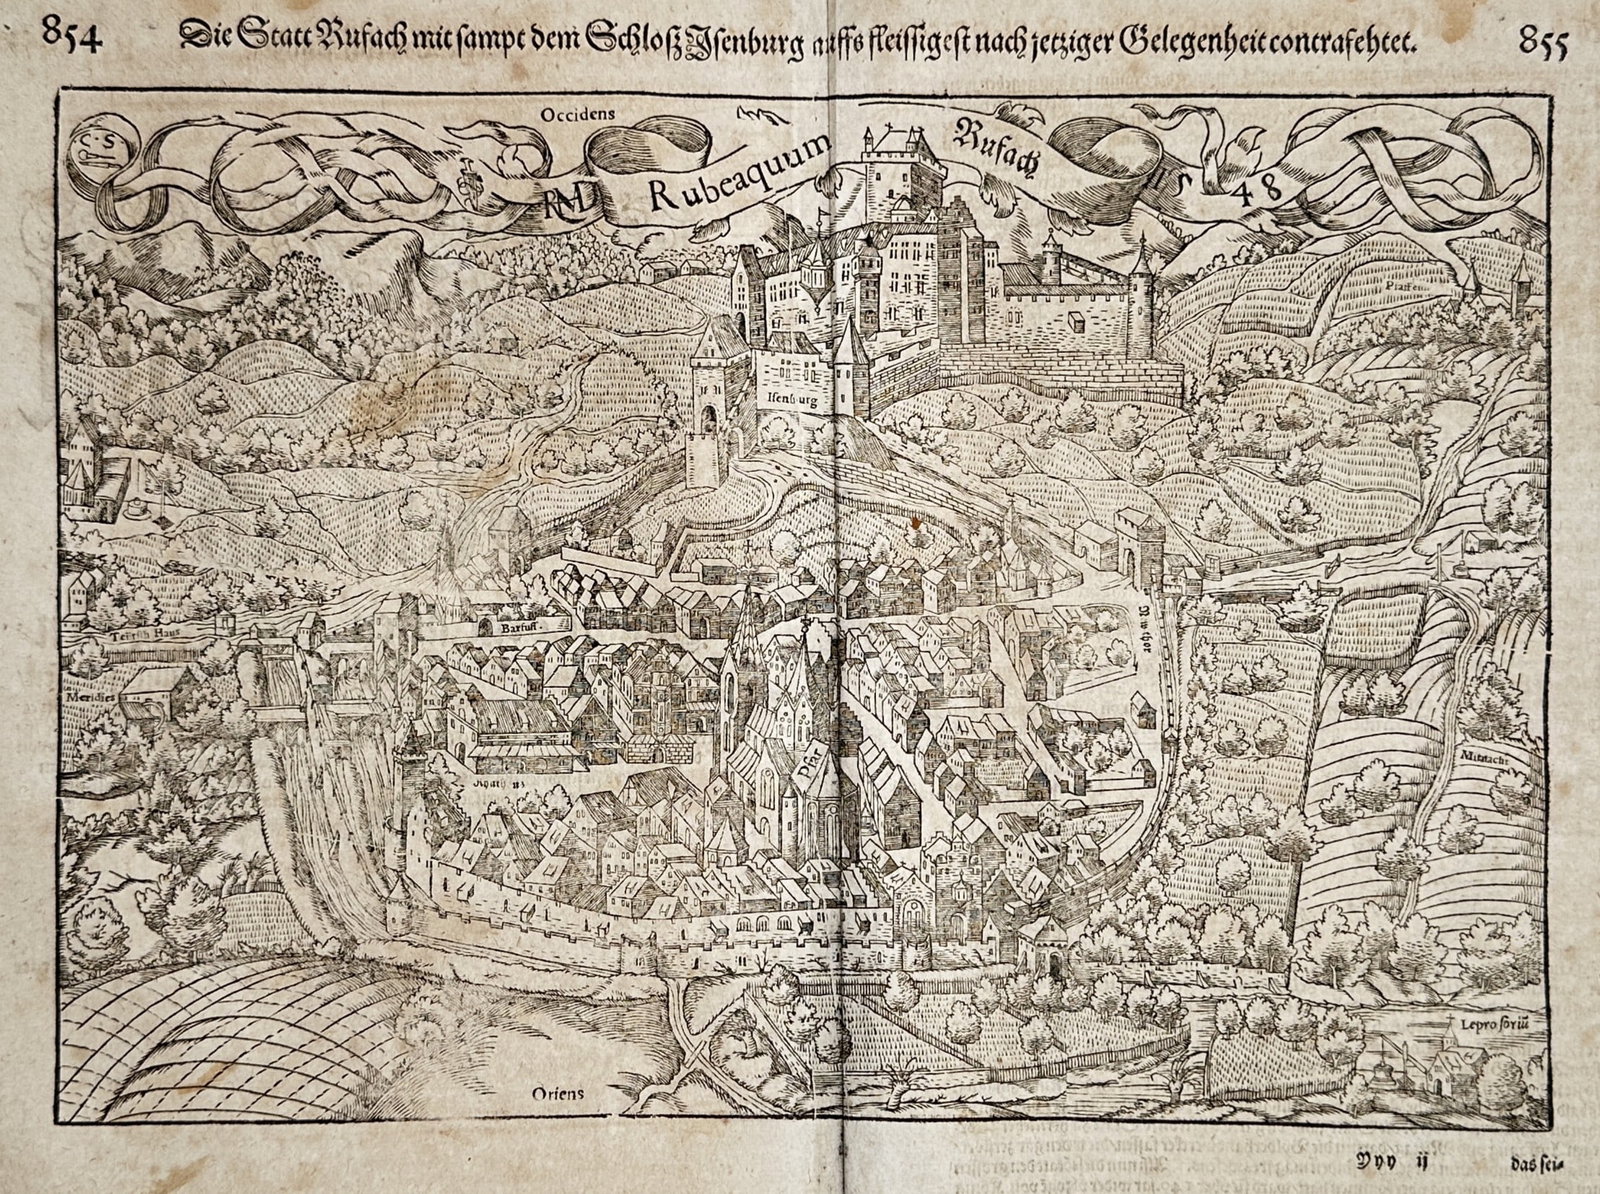 854
Die Statt Rufach mit sampt dem Schloß Isenburg auffs fleissigest nach jetziger Gelegenheit contrafehtet.
855
C·S
Occidens
RMD
Rubeaquum
Rufach
1548
Isenburg
Barfuss.
Teutsch Haus
Meridies
Pfar
Mitnacht
Leprosoriū
Oriens
Yyy ij
das sei⸗